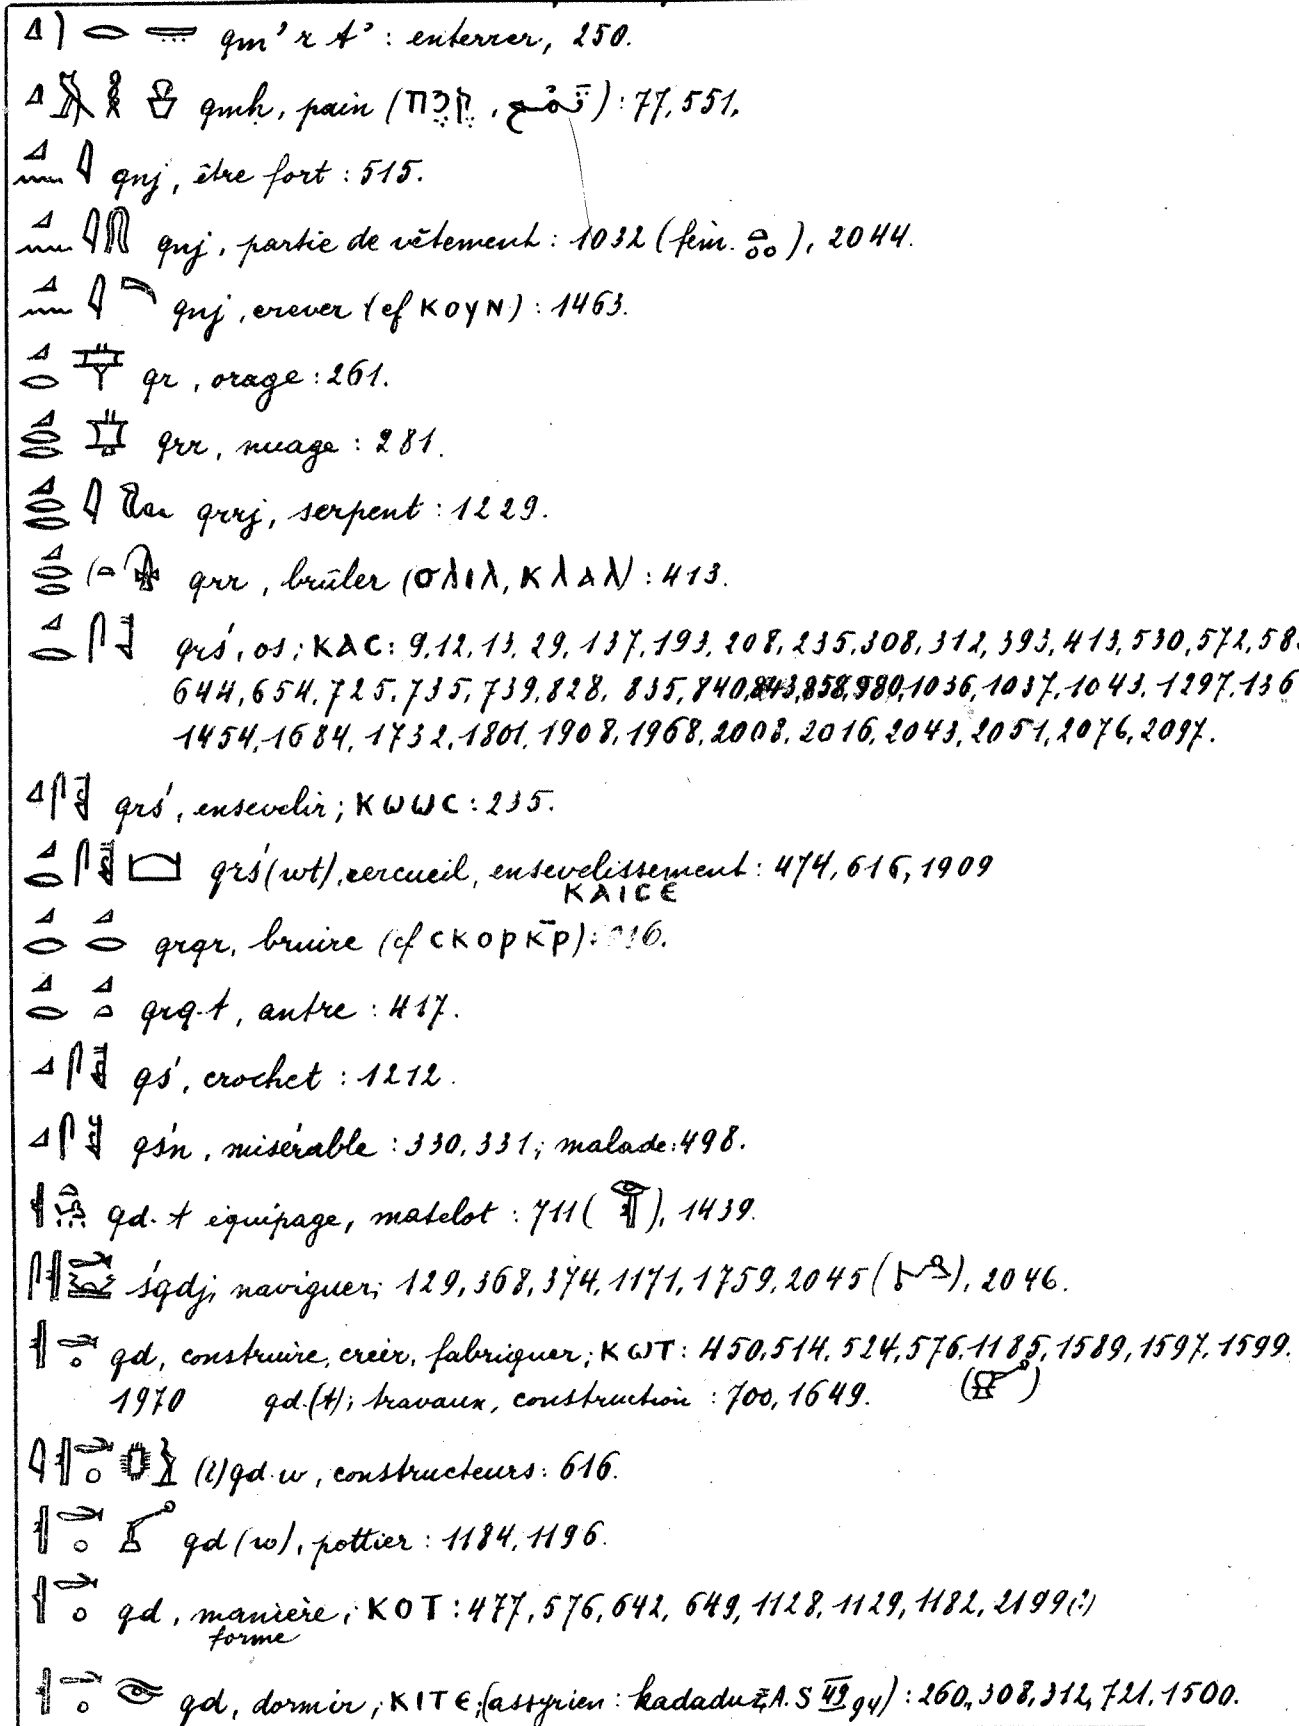 qm' r t' : enterrer, 250.
qmḥ, pain (קמח, قمح) : 77, 551.
qnj, être fort : 515.
qnj, partie de vêtement : 1032 (fém.), 2044.
qnj, crever (cf ⲕⲟⲩⲛ) : 1463.
qr, orage : 261.
qrr, nuage : 281.
qrrj, serpent : 1229.
qrr, brûler (ϭⲗⲓⲗ, ⲕⲗⲁⲗ) : 413.
qrś, os; ⲕⲁⲥ : 9, 12, 13, 29, 137, 193, 208, 235, 308, 312, 393, 413, 530, 572, 58
644, 654, 725, 735, 739, 828, 835, 840, 843, 858, 980, 1036, 1037, 1043, 1297, 136
1454, 1684, 1732, 1801, 1908, 1968, 2008, 2016, 2043, 2051, 2076, 2097.
qrś, ensevelir; ⲕⲱⲱⲥ : 235.
qrś(wt), cercueil, ensevelissement : 474, 616, 1909
ⲕⲁⲓⲥⲉ
qrqr, bruire (cf ⲥⲕⲟⲣⲕⲣ̄) :
qrq.t, antre : 417.
qś, crochet : 1212.
qśn, misérable : 330, 331; malade : 498.
qd.t équipage, matelot : 711 ( ), 1439.
śqdj, naviguer; 129, 368, 374, 1171, 1759, 2045 ( ), 2046.
qd, construire, créer, fabriquer; ⲕⲱⲧ : 450, 514, 524, 576, 1185, 1589, 1597, 1599.
1970 qd.(t); travaux, construction : 700, 1649. ( )
(i)qd.w, constructeurs : 616.
qd(w), pottier : 1184, 1196.
qd, manière, ⲕⲟⲧ : 477, 576, 642, 649, 1128, 1129, 1182, 2199(?)
forme
qd, dormir; ⲕⲓⲧⲉ; (assyrien : kadadu Z.A.S 49 94) : 260, 308, 312, 721, 1500.